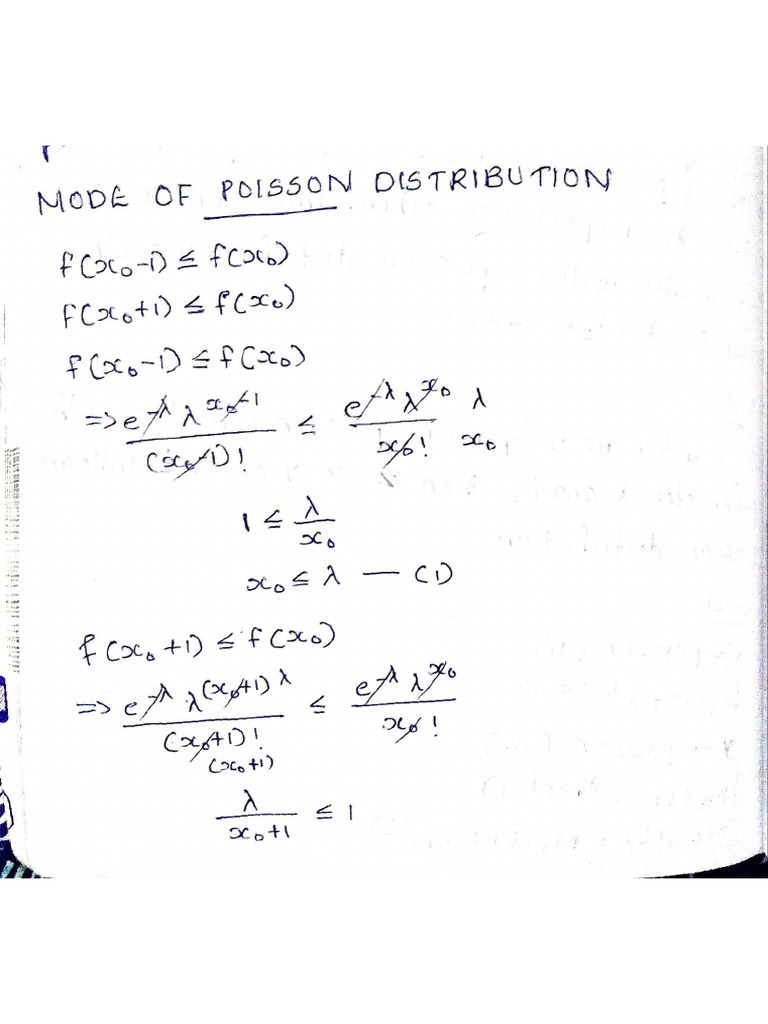 MODE OF POISSON DISTRIBUTION
f(x₀-1) ≤ f(x₀)
f(x₀+1) ≤ f(x₀)
f(x₀-1) ≤ f(x₀)
=> e^-λ λ^x₀-1 / (x₀-1)! ≤ e^-λ λ^x₀ / x₀! λ / x₀
1 ≤ λ / x₀
x₀ ≤ λ — (1)
f(x₀+1) ≤ f(x₀)
=> e^-λ λ^(x₀+1) λ / (x₀+1)! (x₀+1) ≤ e^-λ λ^x₀ / x₀!
λ / x₀+1 ≤ 1